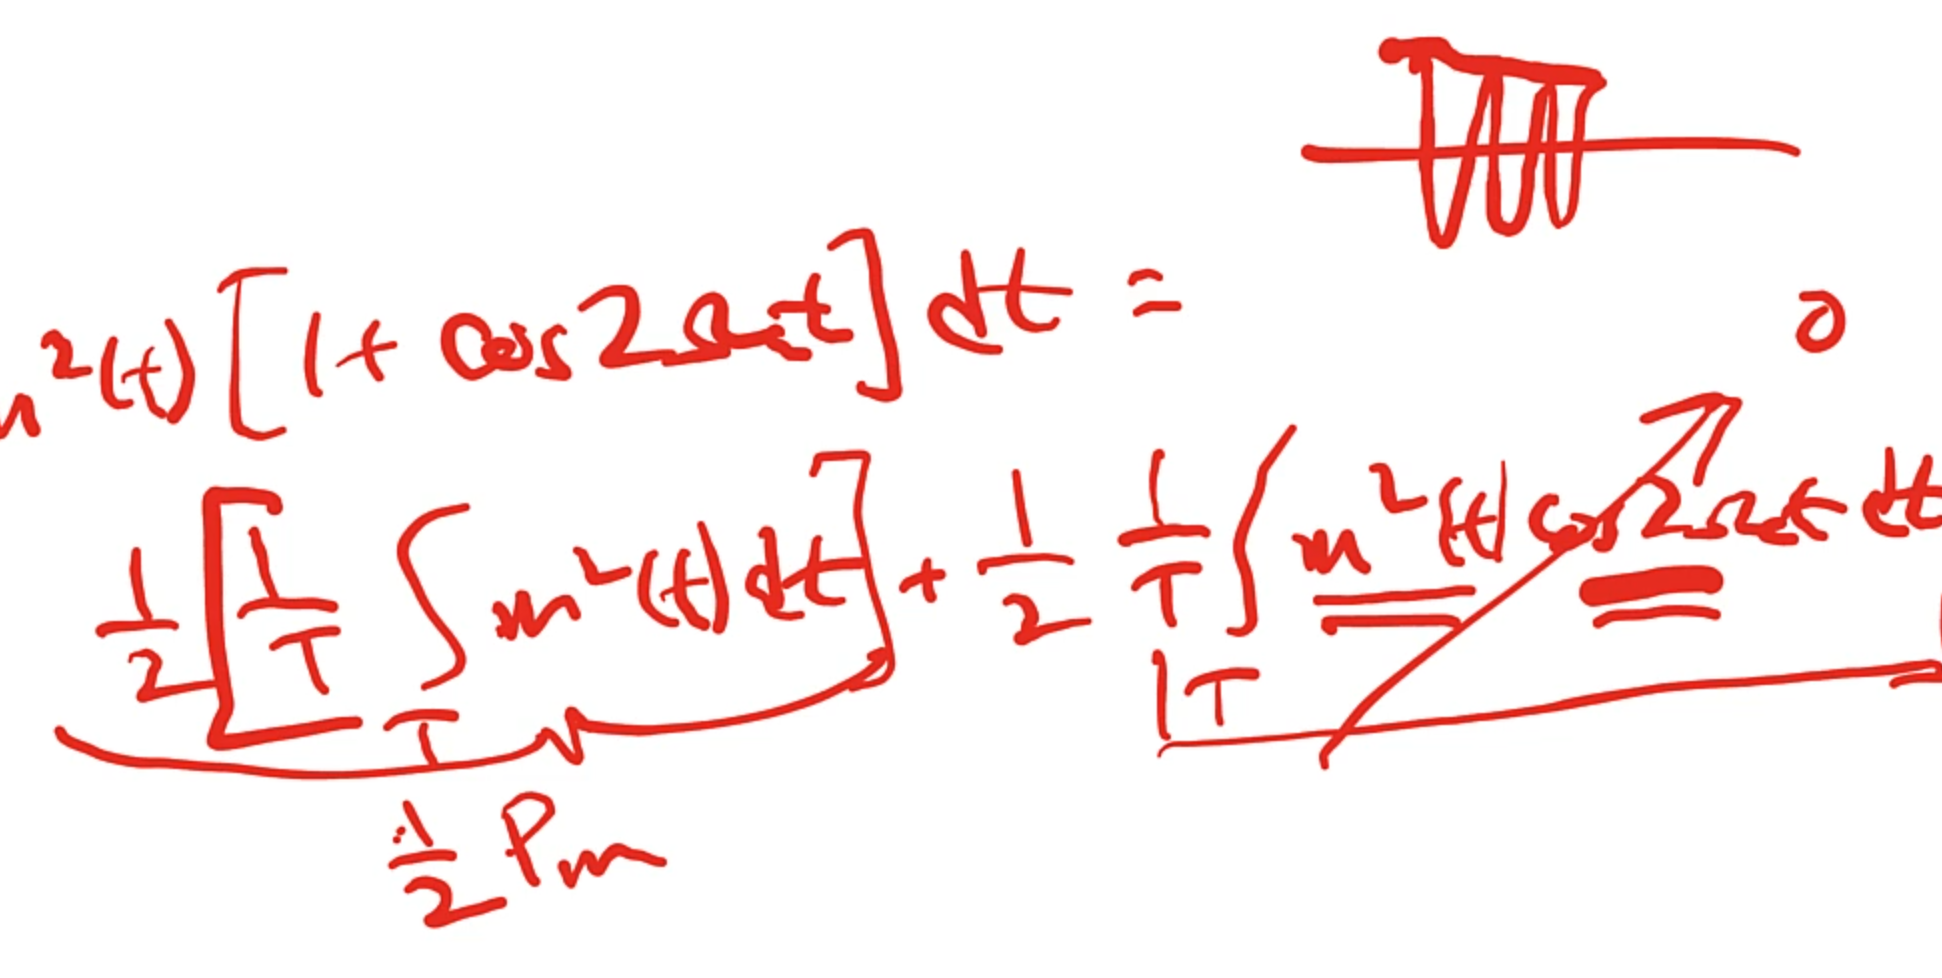 m²(t) [1 + cos 2Ωct] dt =
0
1/2 [1/T ∫T m²(t) dt] + 1/2 1/T ∫T m²(t) cos 2Ωct dt
1/2 Pm